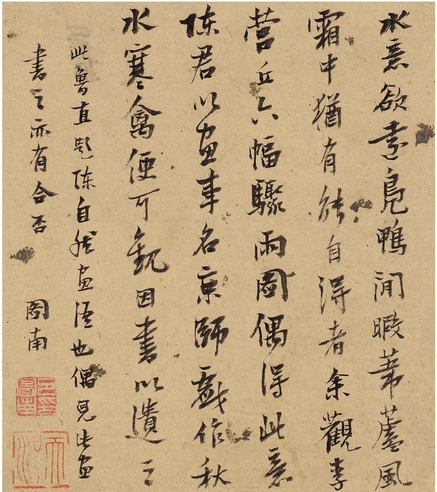 水意欲遠鳧鴨閒暇葦蘆風
霜中猶有能自得者余觀李
營丘六幅驟雨圖偶得此意
陳君以画事名京師戲作秋
水寒禽便可觀因書以遺之
此魯直題陳自然画語也偶見此画
書之亦有合否
圖南